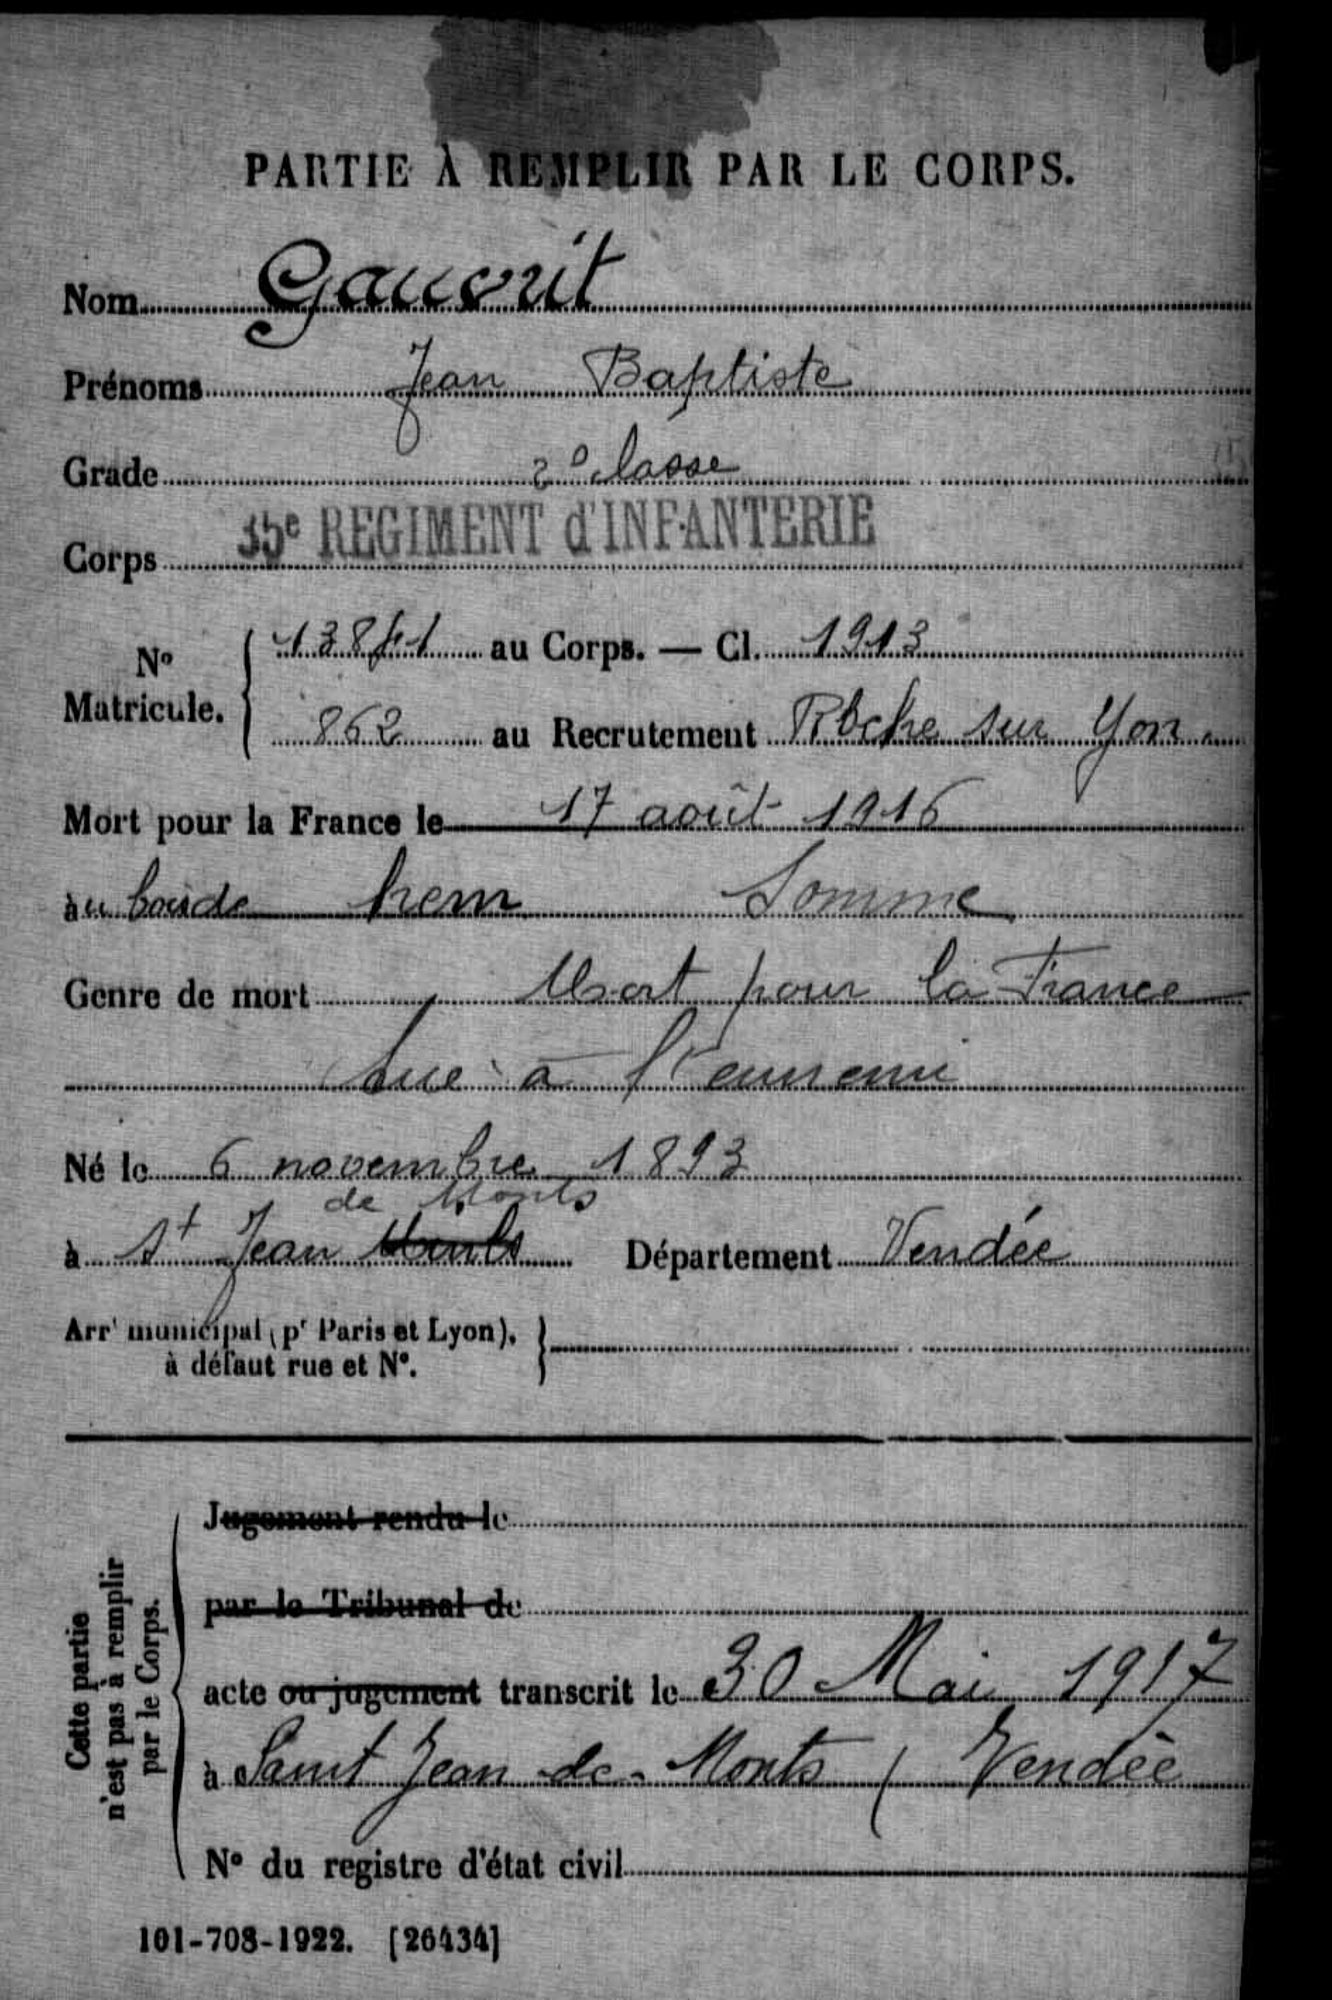 PARTIE À REMPLIR PAR LE CORPS.
Nom Gauvrit
Prénoms Jean Baptiste
Grade 2e classe
Corps 35e REGIMENT d'INFANTERIE
No Matricule. 13841 au Corps. — Cl. 1913
862 au Recrutement Roche sur Yon
Mort pour la France le 17 août 1916
au bois de hem Somme
Genre de mort Mort pour la France
tué à l'ennemi
Né le 6 novembre 1893
de Monts
à St Jean Monts Département Vendée
Arrt municipal (pr Paris et Lyon),
à défaut rue et No.
Jugement rendu le
par le Tribunal de
acte ou jugement transcrit le 30 Mai 1917
à Saint Jean de Monts ( Vendée
No du registre d'état civil
Cette partie
n'est pas à remplir
par le Corps.
101-708-1922. [26434]